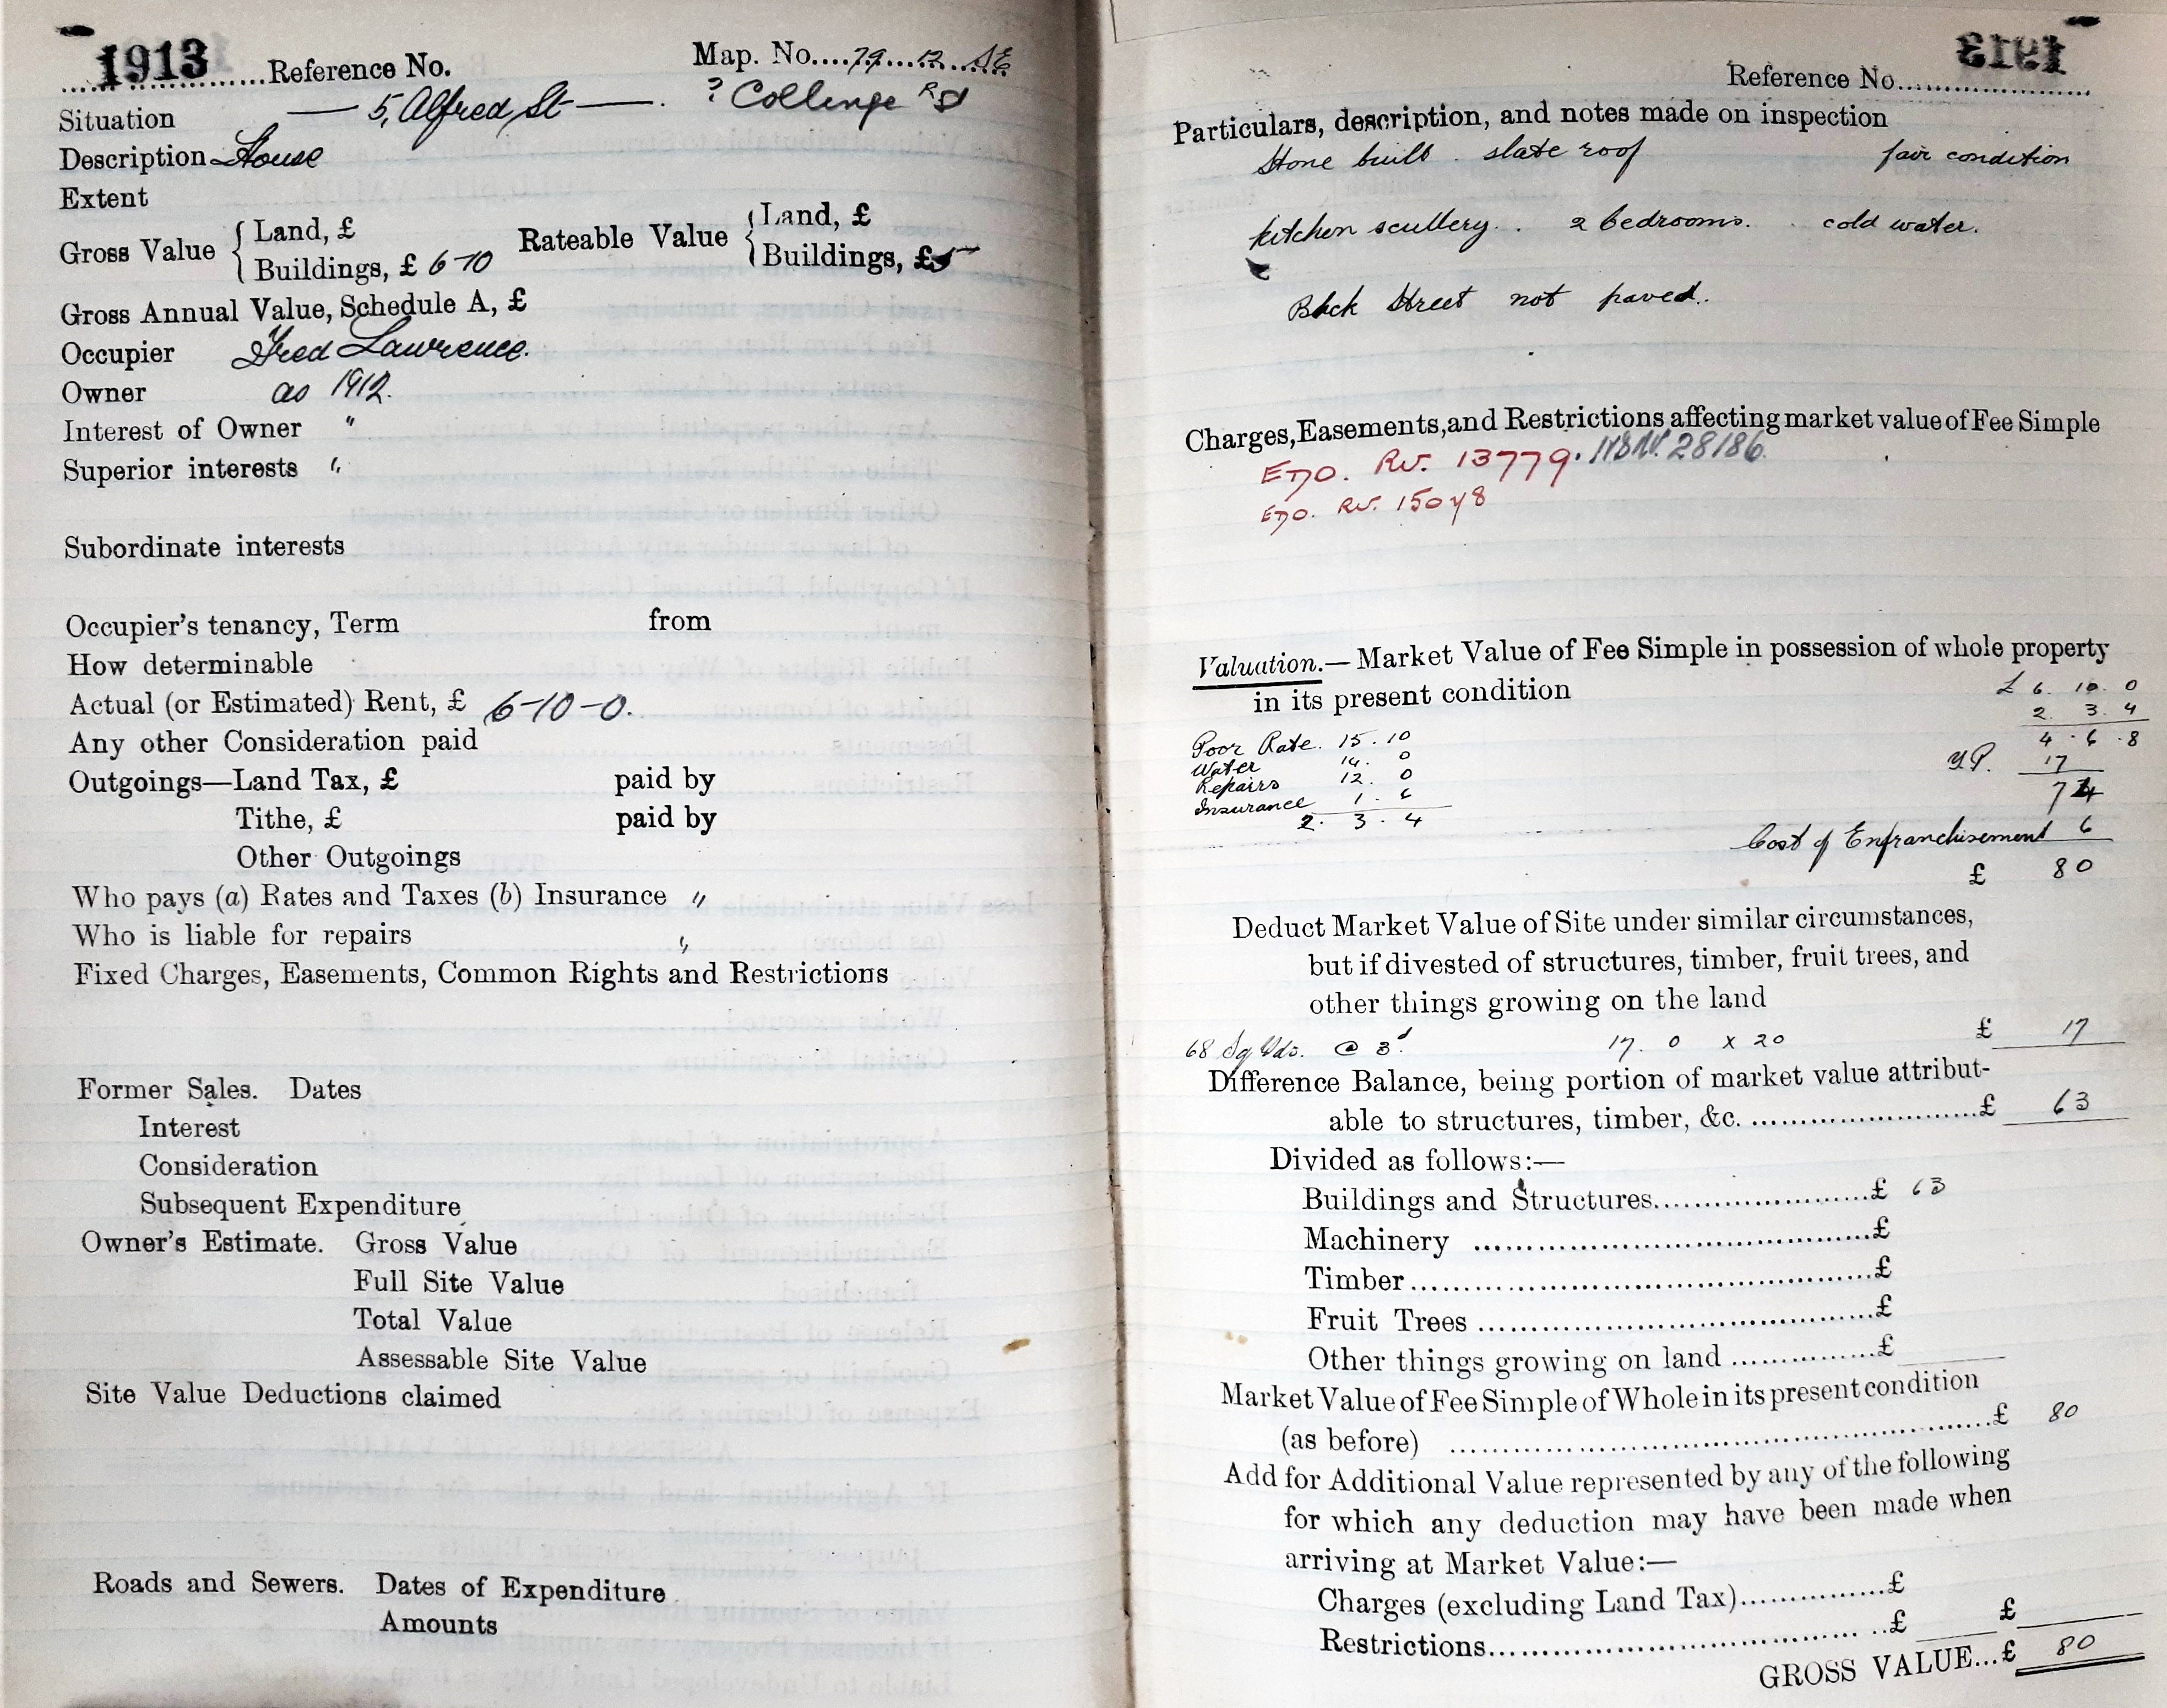 1913 Reference No. Map. No. 79 12 SE
Situation — 5, Alfred St — . ? Collinge Rd St
Description House
Extent
Gross Value { Land, £ Rateable Value { Land, £
Buildings, £ 6-10 Buildings, £5
Gross Annual Value, Schedule A, £
Occupier Fred Lawrence.
Owner as 1912.
Interest of Owner "
Superior interests "
Subordinate interests
Occupier's tenancy, Term from
How determinable
Actual (or Estimated) Rent, £ 6-10-0.
Any other Consideration paid
Outgoings—Land Tax, £ paid by
Tithe, £ paid by
Other Outgoings
Who pays (a) Rates and Taxes (b) Insurance "
Who is liable for repairs "
Fixed Charges, Easements, Common Rights and Restrictions
Former Sales. Dates
Interest
Consideration
Subsequent Expenditure
Owner's Estimate. Gross Value
Full Site Value
Total Value
Assessable Site Value
Site Value Deductions claimed
Roads and Sewers. Dates of Expenditure
Amounts
Reference No. 1913
Particulars, description, and notes made on inspection
Stone built . slate roof fair condition
kitchen scullery . . 2 bedrooms. . cold water.
Back Street not paved.
Charges, Easements, and Restrictions affecting market value of Fee Simple
Rv. 13779. 28186
Rv. 15078
Valuation.—Market Value of Fee Simple in possession of whole property
in its present condition
£ 6. 10. 0
2. 3. 4
Poor Rate. 15. 10 4. 6. 8
Water 14. 0 Y.P. 17
Repairs 12. 0 74
Insurance 1. 6
2. 3. 4 Cost of Enfranchisement 6
£ 80
Deduct Market Value of Site under similar circumstances,
but if divested of structures, timber, fruit trees, and
other things growing on the land
68 Sq Yds. @ 3d. 17. 0 x 20 £ 17
Difference Balance, being portion of market value attribut-
able to structures, timber, &c. £ 63
Divided as follows:—
Buildings and Structures £ 63
Machinery £
Timber £
Fruit Trees £
Other things growing on land £
Market Value of Fee Simple of Whole in its present condition
(as before) £ 80
Add for Additional Value represented by any of the following
for which any deduction may have been made when
arriving at Market Value:—
Charges (excluding Land Tax) £
Restrictions £ £
GROSS VALUE...£ 80